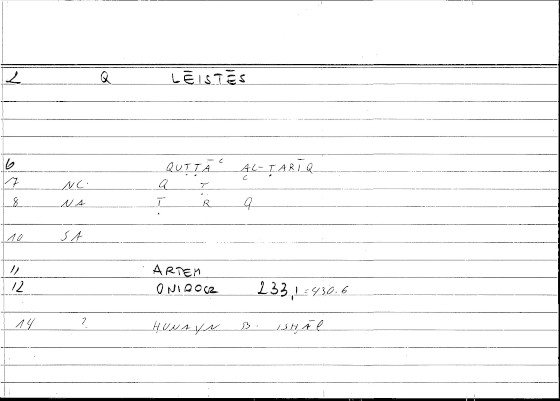 2 Q LĒISTĒS
6 QUṬṬĀʿ AL-ṬARĪQ
7 NC. Q Ṭ ʿ
8 NA Ṭ R Q
10 SA
11 ARTEM
12 ONIROCR 233,1=430.6
14 ? HUNAYN B. ISḤĀQ